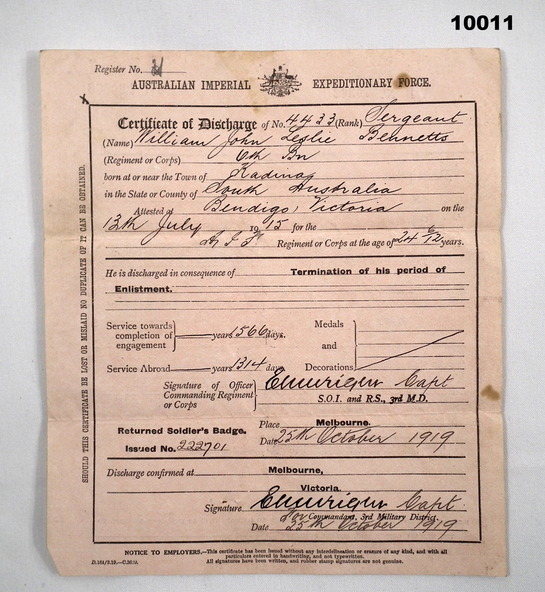 10011
Register No.
AUSTRALIAN IMPERIAL EXPEDITIONARY FORCE.
Certificate of Discharge of No. 4433 (Rank) Sergeant
(Name) William John Leslie Bennetts
(Regiment or Corps) 6th Bn
born at or near the Town of Kadina
in the State or County of South Australia
Attested at Bendigo, Victoria on the
13th July 1915 for the
A.I.F. Regiment or Corps at the age of 24 6/12 years.
He is discharged in consequence of Termination of his period of
Enlistment.
Service towards completion of engagement years 1566 days.
Service Abroad years 1314 days
Medals
and
Decorations
Signature of Officer
Commanding Regiment
or Corps
Capt
S.O.I. and R.S., 3rd M.D.
Returned Soldier's Badge.
Issued No. 222701
Place Melbourne.
Date 25th October 1919
Discharge confirmed at Melbourne,
Victoria.
Signature Capt
for Commandant, 3rd Military District.
Date 25th October 1919
NOTICE TO EMPLOYERS.—This certificate has been issued without any interlineation or erasure of any kind, and with all
particulars entered in handwriting, and not typewritten.
All signatures have been written, and rubber stamp signatures are not genuine.
SHOULD THIS CERTIFICATE BE LOST OR MISLAID NO DUPLICATE OF IT CAN BE OBTAINED.